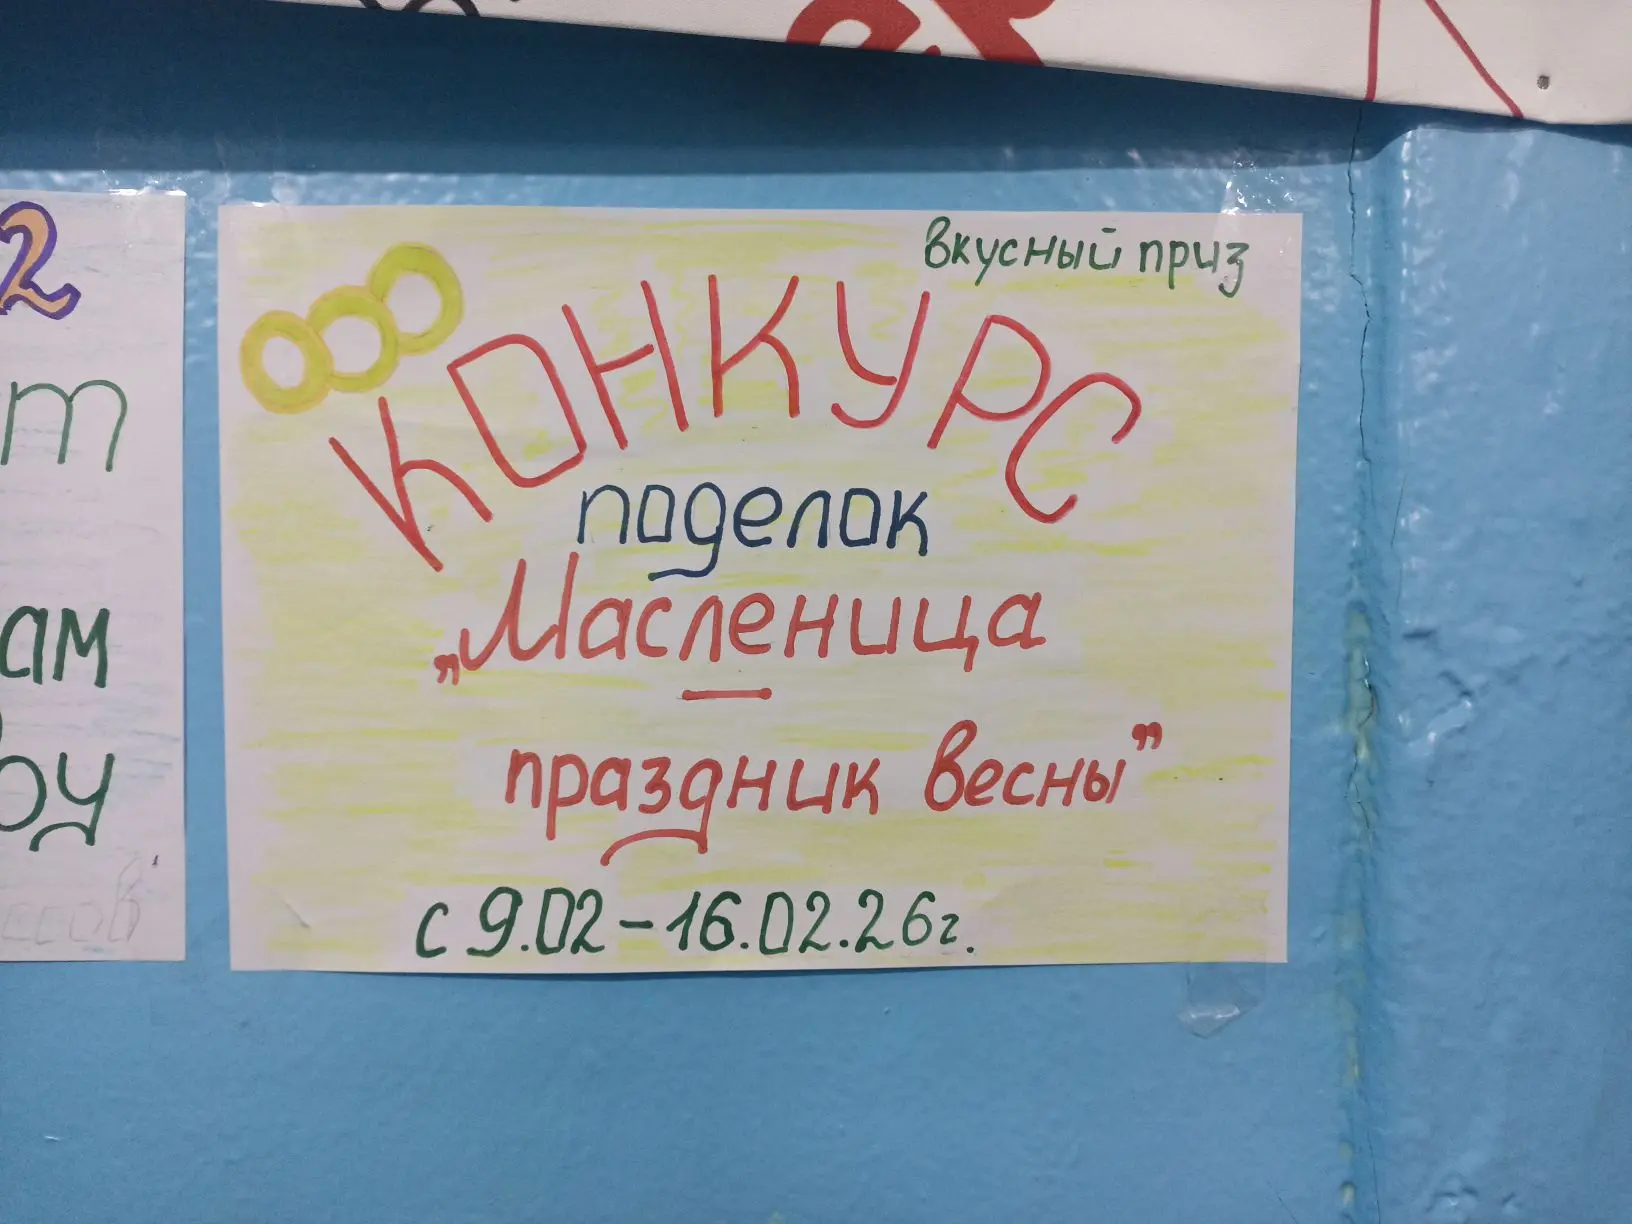 2
ам
вкусный приз
КОНКУРС
поделок
„Масленица
праздник весны”
с 9.02-16.02.26г.